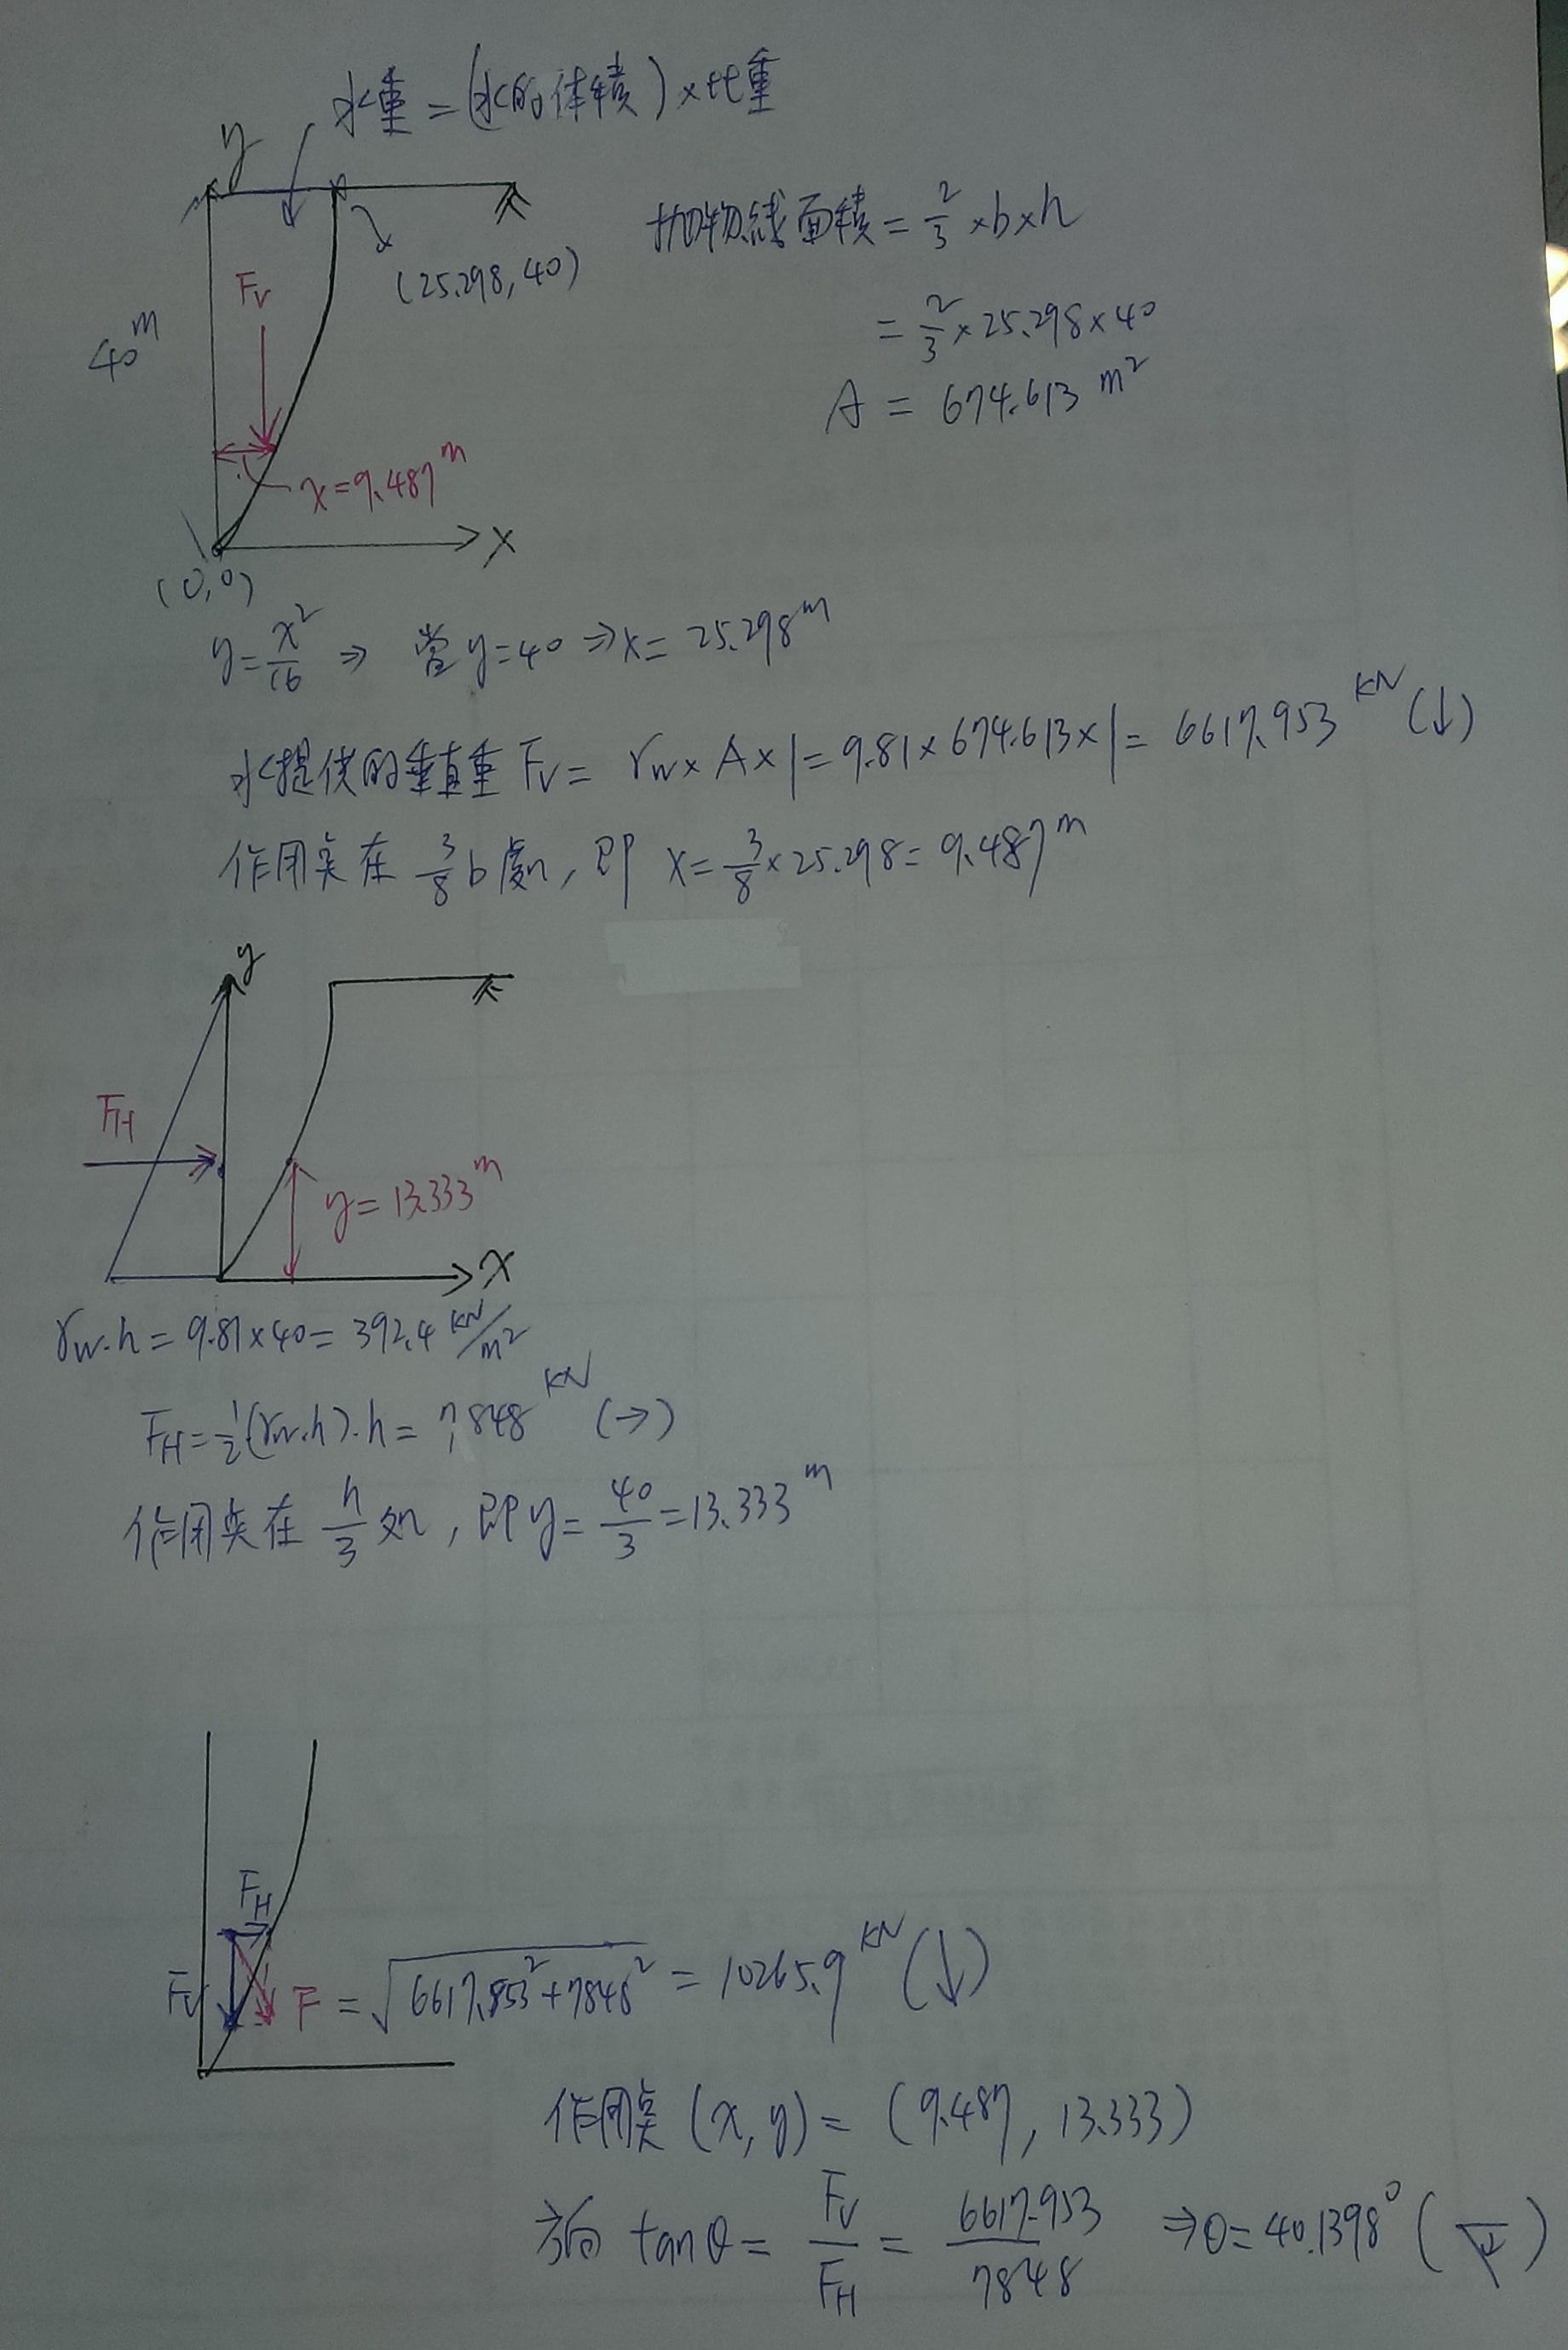 水重=(水的体積)×比重
y
(25.298, 40)
拋物線面積=2/3×b×h
=2/3×25.298×40
A = 674.613 m²
Fv
40m
x=9.487m
x
(0,0)
y=x²/16 ⇒ 當y=40 ⇒x= 25.298m
水提供的垂直重 Fv= rw×A×1=9.81×674.613×1= 6617.953 KN (↓)
作用点在 3/8 b處, 即 x=3/8×25.298=9.487m
y
FH
y=13.333m
x
rw.h=9.81×40=392.4 KN/m²
FH=1/2(rw.h).h=7,848 KN (→)
作用点在 h/3 处, 即y=40/3=13.333m
FH
Fv
F=√6617.953²+7848² = 10265.9 KN (↓)
作用点 (x,y)= (9.487, 13.333)
方向 tanθ= Fv/FH = 6617.953/7848 ⇒θ=40.1398°